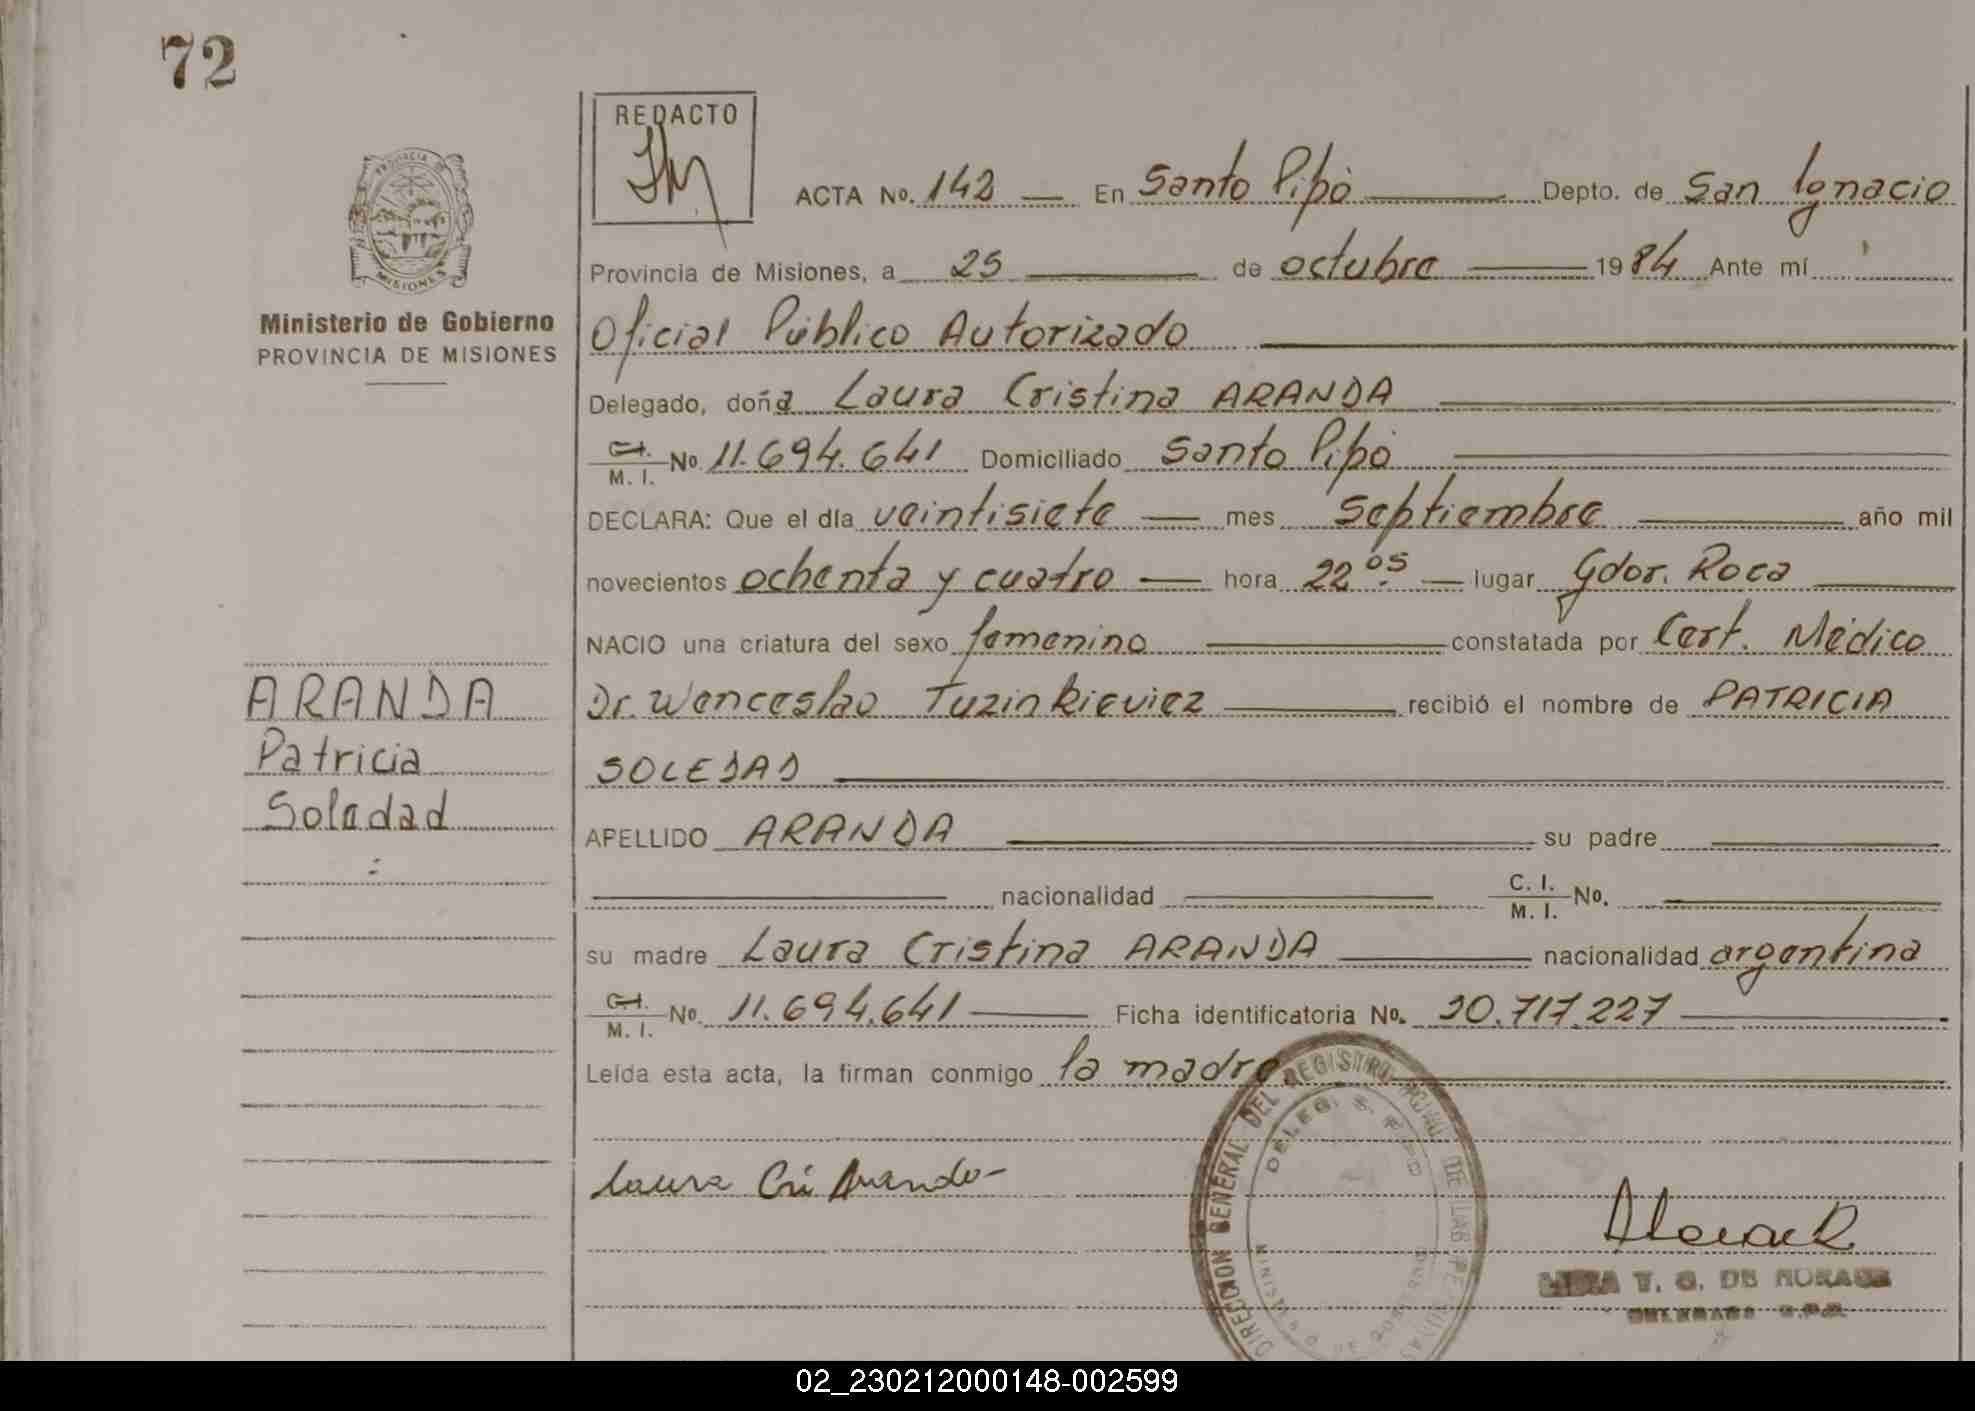 72
REDACTO
ACTA No. 142 En Santo Pipò Depto. de San Ignacio
Provincia de Misiones, a 25 de octubre 1984 Ante mí
Ministerio de Gobierno
PROVINCIA DE MISIONES
Oficial Público Autorizado
Delegado, doña Laura Cristina ARANDA
C.I. M. I. No. 11.694.641 Domiciliado Santo Pipò
DECLARA: Que el día veintisiete mes septiembre año mil
novecientos ochenta y cuatro hora 22 05 lugar Gdor. Roca
NACIO una criatura del sexo femenino constatada por Cert. Médico
Dr. Wenceslao Tuzinkieviez recibió el nombre de PATRICIA
SOLEDAD
ARANDA
Patricia
Soledad
APELLIDO ARANDA su padre
nacionalidad C. I. M. I. No.
su madre Laura Cristina ARANDA nacionalidad argentina
C.I. M. I. No. 11.694.641 Ficha identificatoria No. 30.717.227
Leída esta acta, la firman conmigo la madre
Laura Cri Aranda
DIRECCION GENERAL DEL REGISTRO DE LAS PERSONAS
DELEG. S. PIPO
MINISTERIO DE GOBIERNO
T. G. DE MORAES
02_230212000148-002599